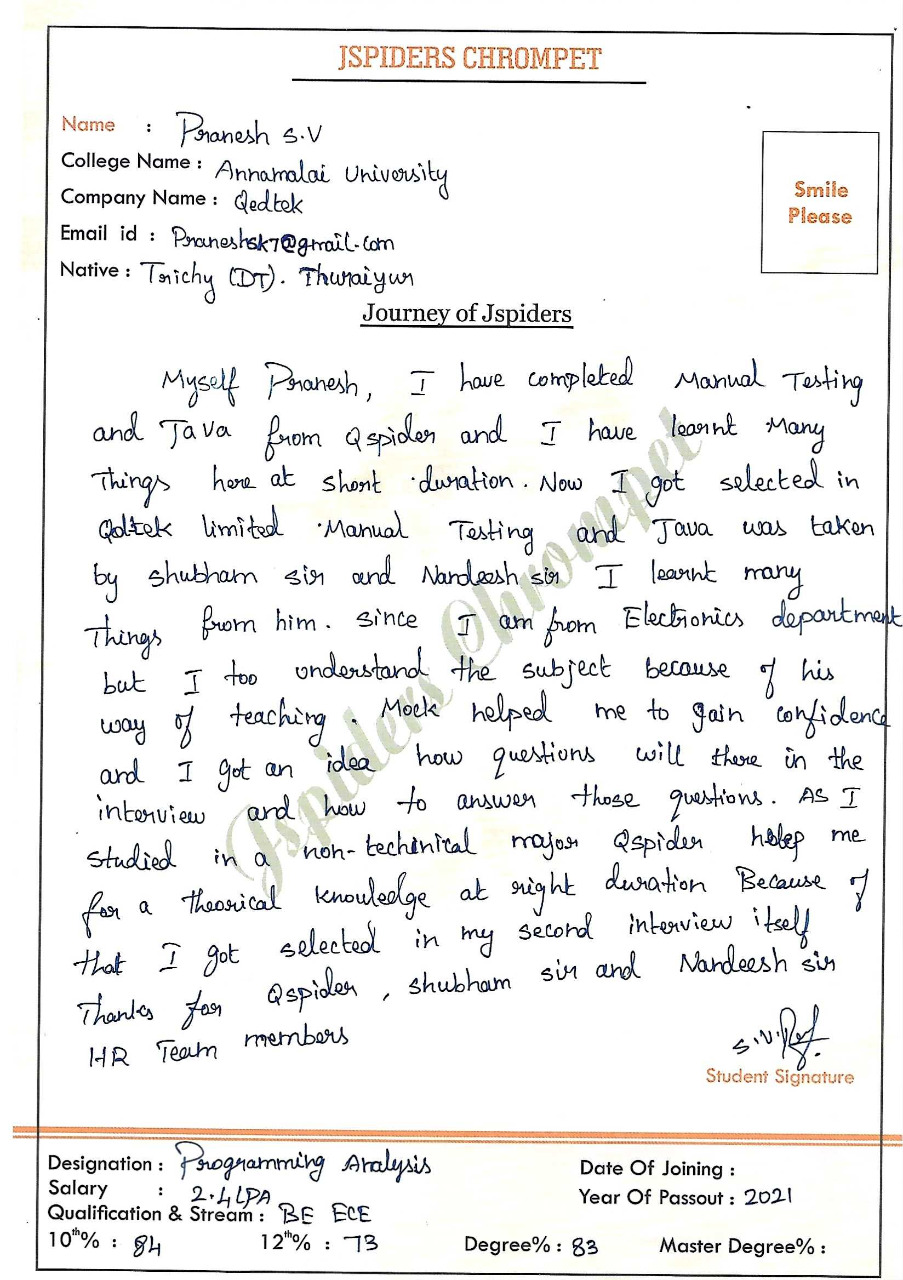 JSPIDERS CHROMPET
Name : Pranesh S.V
College Name : Annamalai University
Company Name : Qedtek
Email id : Praneshsk7@gmail.com
Native : Trichy (DT). Thuraiyur
Smile
Please
Journey of Jspiders
Myself Pranesh, I have completed Manual Testing
and Java from Qspider and I have learnt Many
Things here at short duration. Now I got selected in
Qdtek limited Manual Testing and Java was taken
by Shubham sir and Nandeesh sir I learnt many
Things from him. Since I am from Electronics department
but I too understand the subject because of his
way of teaching. Mock helped me to gain confidence
and I got an idea how questions will there in the
interview and how to answer those questions. AS I
studied in a non-techinical major Qspider help me
for a theorical knowledge at right duration Because of
that I got selected in my second interview itself
Thanks for Qspider, Shubham sir and Nandeesh sir
HR Team members
Jspiders Chrompet
Student Signature
Designation : Programming Analysis
Date Of Joining :
Salary : 2.4 LPA
Year Of Passout : 2021
Qualification & Stream : BE ECE
10th% : 84 12th% : 73 Degree% : 83 Master Degree% :